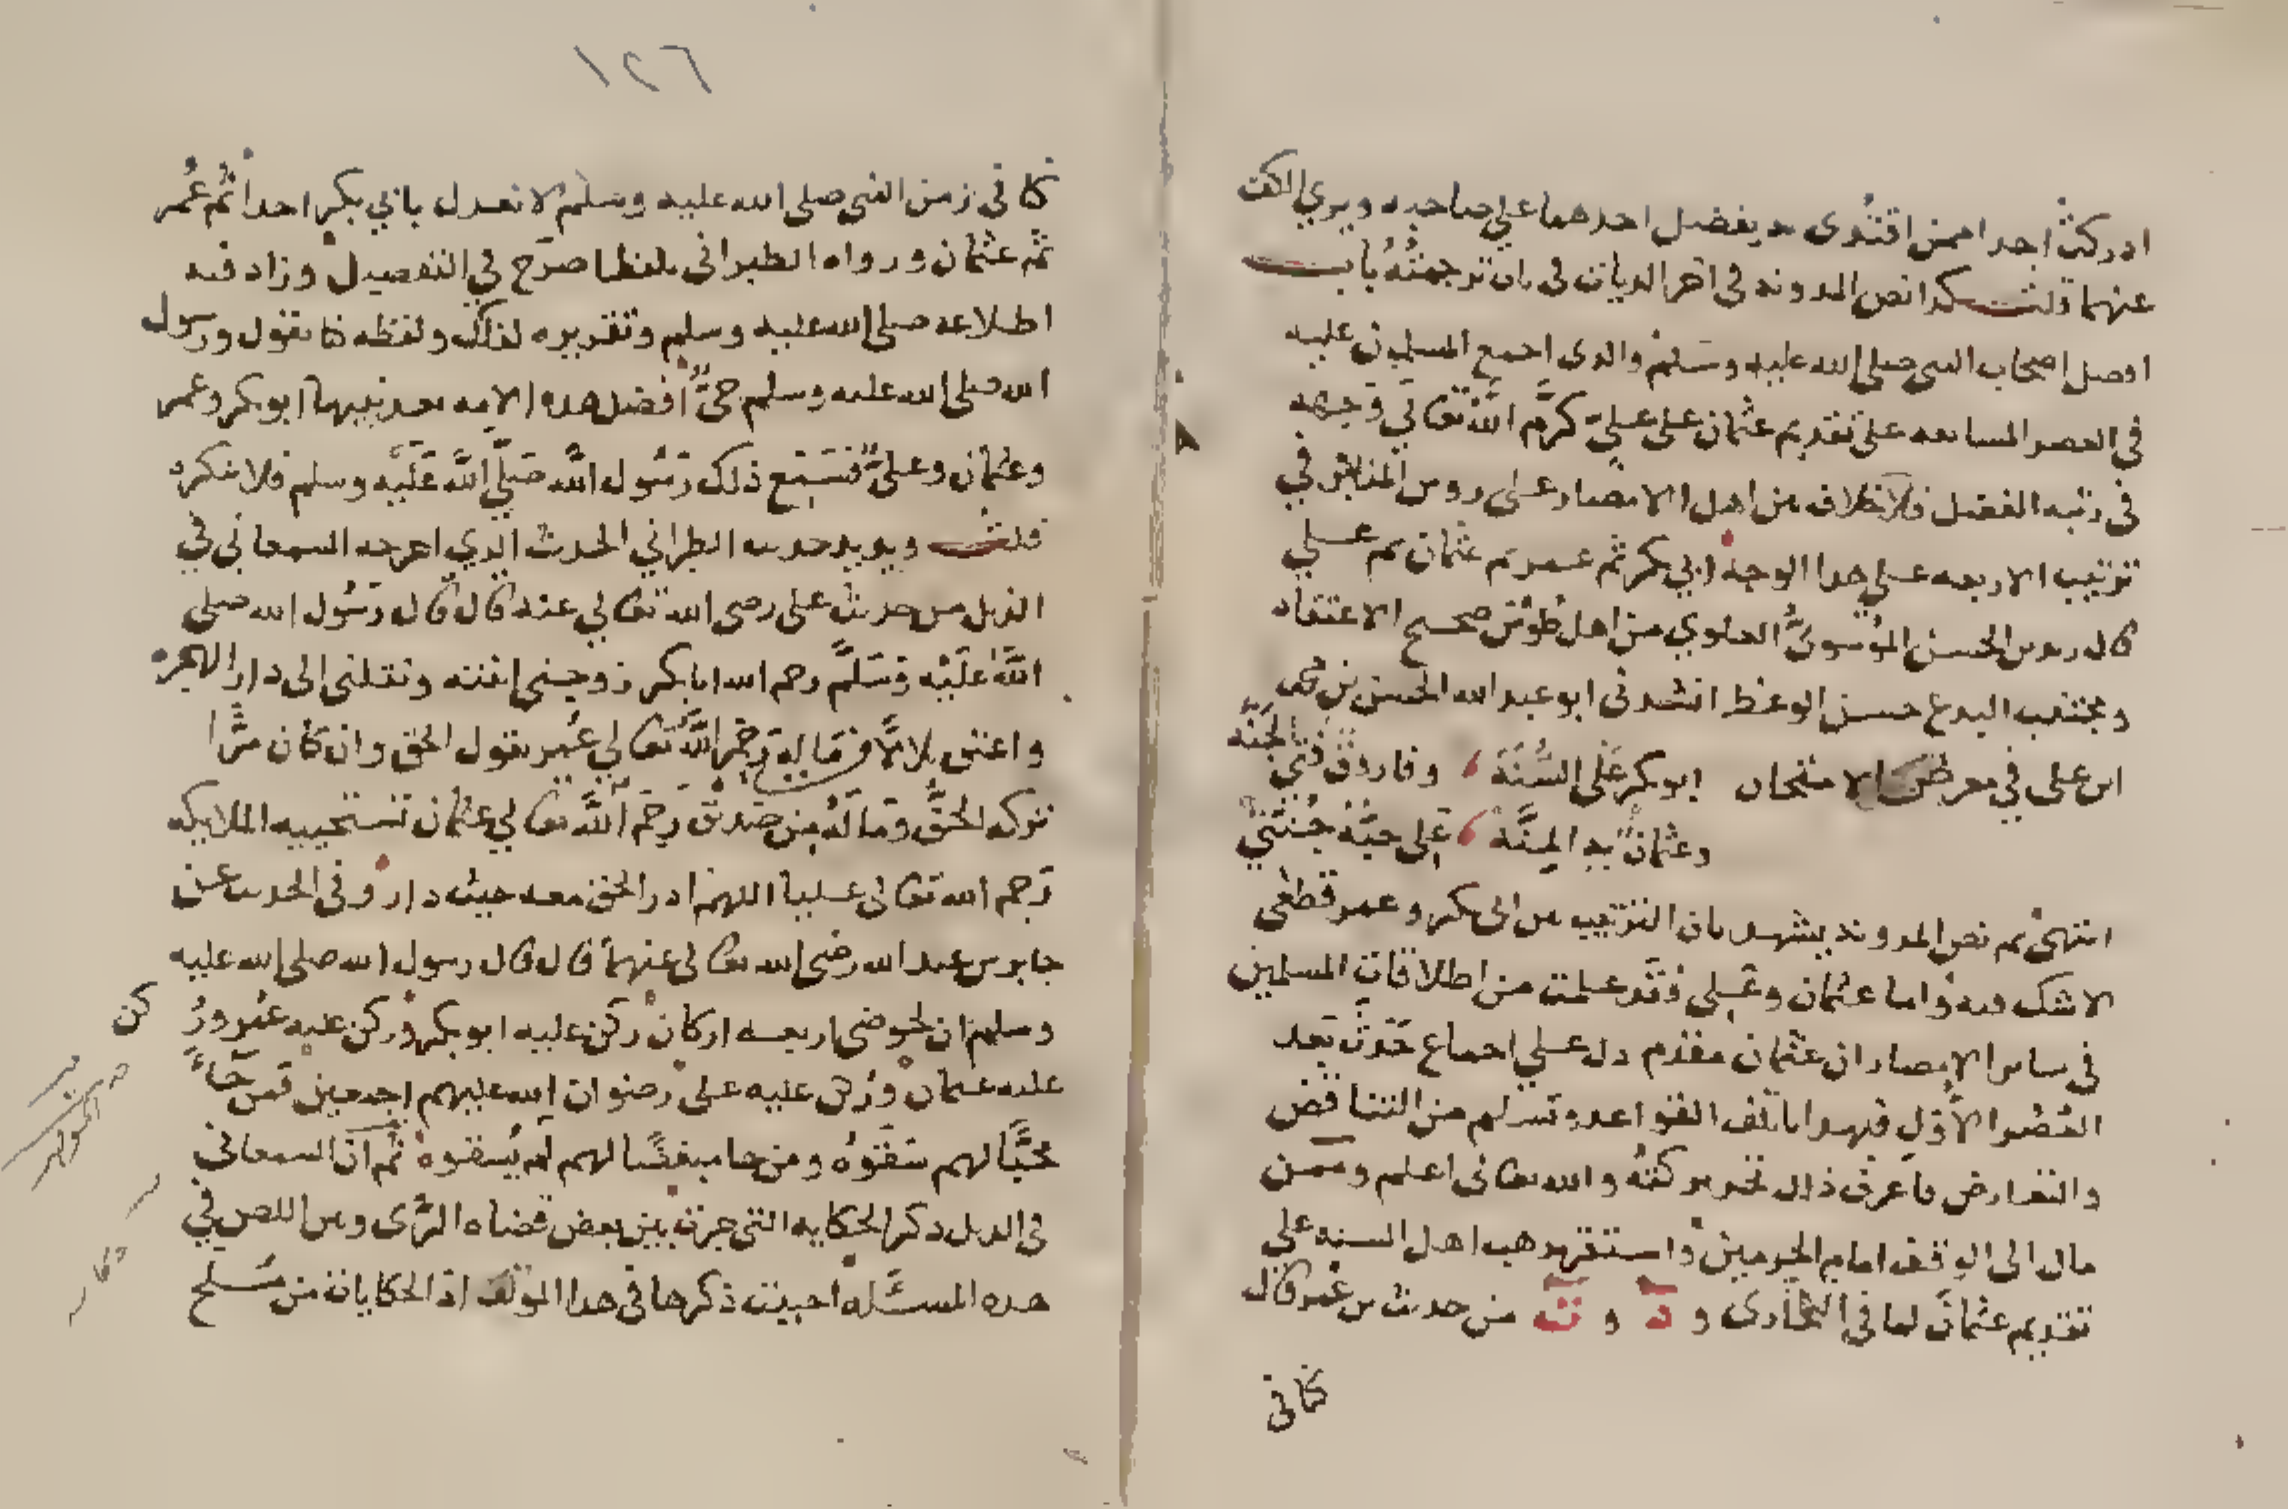 ادركت احدا ممن اقتدى به يفضل احدهما على صاحبه ويرى الكف
عنهما قلت كذا نص المدونة في اخر الديات في باب ترجمته باب
افضل اصحاب النبي صلى الله عليه وسلم والذي اجمع المسلمون عليه
في العصر السابعه على تقديم عثمان على علي كرم الله تعالى وجهه
في رتبه الفضل فلا خلاف من اهل الامصار على روس المنابر في
ترتيب الاربعه على هذا الوجه ابي بكر ثم عمر ثم عثمان ثم علي
قال الحسن الموسوي العلوي من اهل طوس صحيح الاعتقاد
ومجتنب البدع حسن الوعظ انشدني ابو عبد الله الحسن بن
ابن علي في معرض الامتحان ابو بكر على السنة وفاروق فتى الجنة
وعثمان به المنة على حبه جنتي
انتهى ثم نص المدونة يشهد بان الترتيب بين ابي بكر وعمر قطعي
لا شك فيه واما عثمان وعلي فقد علمت من اطلاقات المسلمين
في ساير الامصار ان عثمان مقدم دل على اجماع حدث بعد
العصر الاول فبهذا تاتلف القواعد وتسلم من التناقض
والتعارض فاعرف ذلك تخبر بركته والله تعالى اعلم وممن
مال الى الوقف امام الحرمين واستقر مذهب اهل السنه على
تقديم عثمان لما في البخاري و د و ت من حديث بن عمر قال
كنا في
١٢٦
كنا في زمن النبي صلى الله عليه وسلم لا نعدل بابي بكر احدا ثم عمر
ثم عثمان ورواه الطبراني بلفظ اصرح في التفصيل وزاد فيه
اطلاعه صلى الله عليه وسلم وتقريره لذلك ولفظه كنا نقول ورسول
الله صلى الله عليه وسلم حي افضل هذه الامه بعد نبيها ابو بكر وعمر
وعثمان وعلي فسمع ذلك رسول الله صلى الله عليه وسلم فلا ينكره
قلت ويويد حديث الطبراني الحديث الذي اخرجه السمعاني في
الذيل من حديث علي رضي الله تعالى عنه قال قال رسول الله صلى
الله عليه وسلم رحم الله ابا بكر زوجني ابنته ونقلني الى دار الهجره
واعتق بلالا من ماله رحم الله تعالى عمر يقول الحق وان كان مرا
تركه الحق وماله من صديق رحم الله تعالى عثمان تستحييه الملايكه
رحم الله تعالى عليا اللهم ادر الحق معه حيث دار وفي الحديث عن
جابر بن عبد الله رضي الله تعالى عنهما قال قال رسول الله صلى الله عليه
وسلم ان لحوضي اربعه اركان ركن عليه ابو بكر وركن عليه عمر ور
كن
عليه عثمان وركن عليه علي رضوان الله عليهم اجمعين فمن جاء
محبا لهم سقوه ومن جا مبغضا لهم لم يسقوه ثم ان السمعاني
في الذيل ذكر الحكايه التي جرت بين بعض قضاه الري وبين اللص في
هذه المسئله احببت ذكرها في هذا المولف اذ الحكايات من مسلح